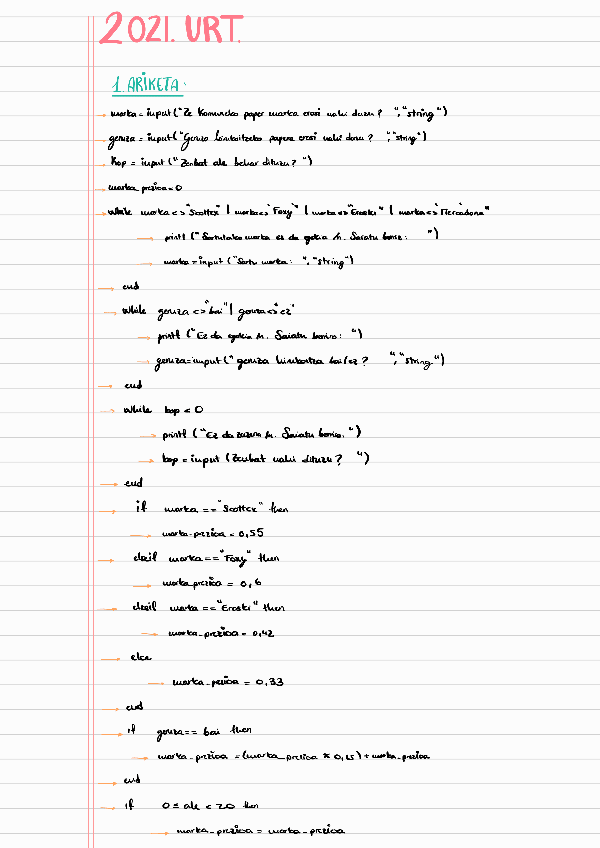 2021. URT.
1. ARIKETA:
marka = input ("Ze komuneko paper marka erosi nahi duzu? ", "string")
geruza = input ("Geruza birukoitzeko papera erosi nahi duzu? ", "string")
kop = input ("Zenbat ale behar dituzu? ")
marka_prezioa = 0
while marka <> "Scottex" | marka <> "Foxy" | marka <> "Eroski" | marka <> "Mercadona"
printf ("Sartutako marka ez da egokia \n. Saiatu berriz: ")
marka = input ("Sartu marka: ", "string")
end
while geruza <> "bai" | geruza <> "ez"
printf ("Ez da egokia \n. Saiatu berriro: ")
geruza = input (" geruza birukoitza bai/ez? ", "string")
end
while kop < 0
printf ("Ez da zuzena \n. Saiatu berriro. ")
kop = input (Zenbat nahi dituzu? ")
end
if marka == "Scottex" then
marka_prezioa = 0,55
elseif marka == "Foxy" then
marka_prezioa = 0,6
elseif marka == "Eroski" then
marka_prezioa = 0,42
else
marka_prezioa = 0,33
end
if geruza == bai then
marka_prezioa = (marka_prezioa * 0,15) + marka_prezioa
end
if 0 ≤ ale < 20 then
marka_prezioa = marka_prezioa